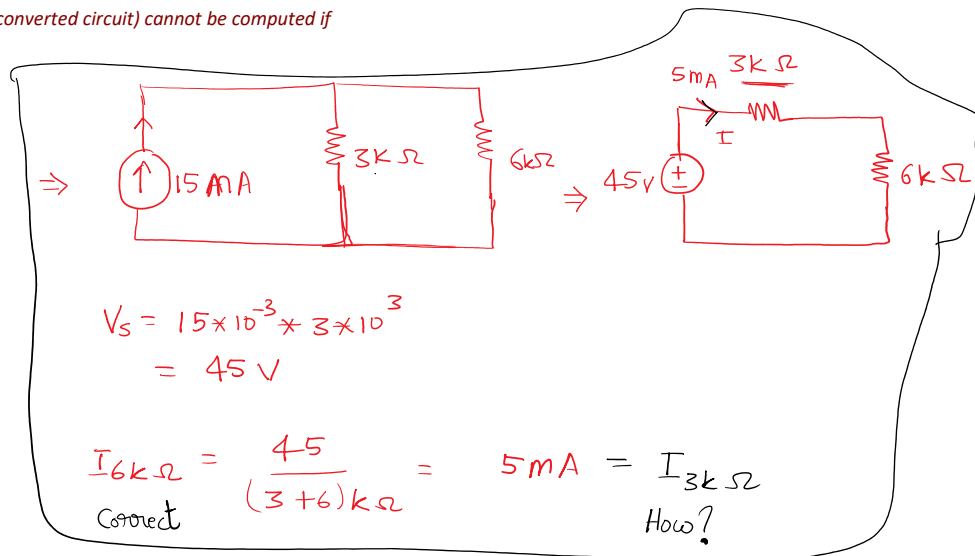 converted circuit) cannot be computed if
5mA 3kΩ
I
⇒ 15mA 3kΩ 6kΩ ⇒ 45v 6kΩ
Vs = 15*10^-3 * 3*10^3
= 45 V
I6kΩ = 45/(3+6)kΩ = 5mA = I3kΩ
Correct How?